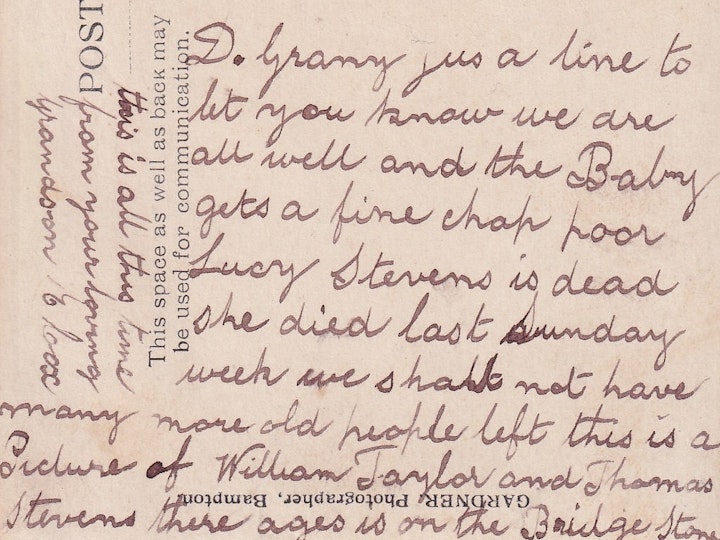 D. Grany jus a line to
let you know we are
all well and the Baby
gets a fine chap poor
Lucy Stevens is dead
she died last sunday
week we shall not have
many more old people left this is a
Picture of William Taylor and Thomas
Stevens there ages is on the Bridge Stone
this is all this time
from your loving
grandson B Cox
POST
This space as well as back may
be used for communication.
GARDNER, Photographer, Bampton.